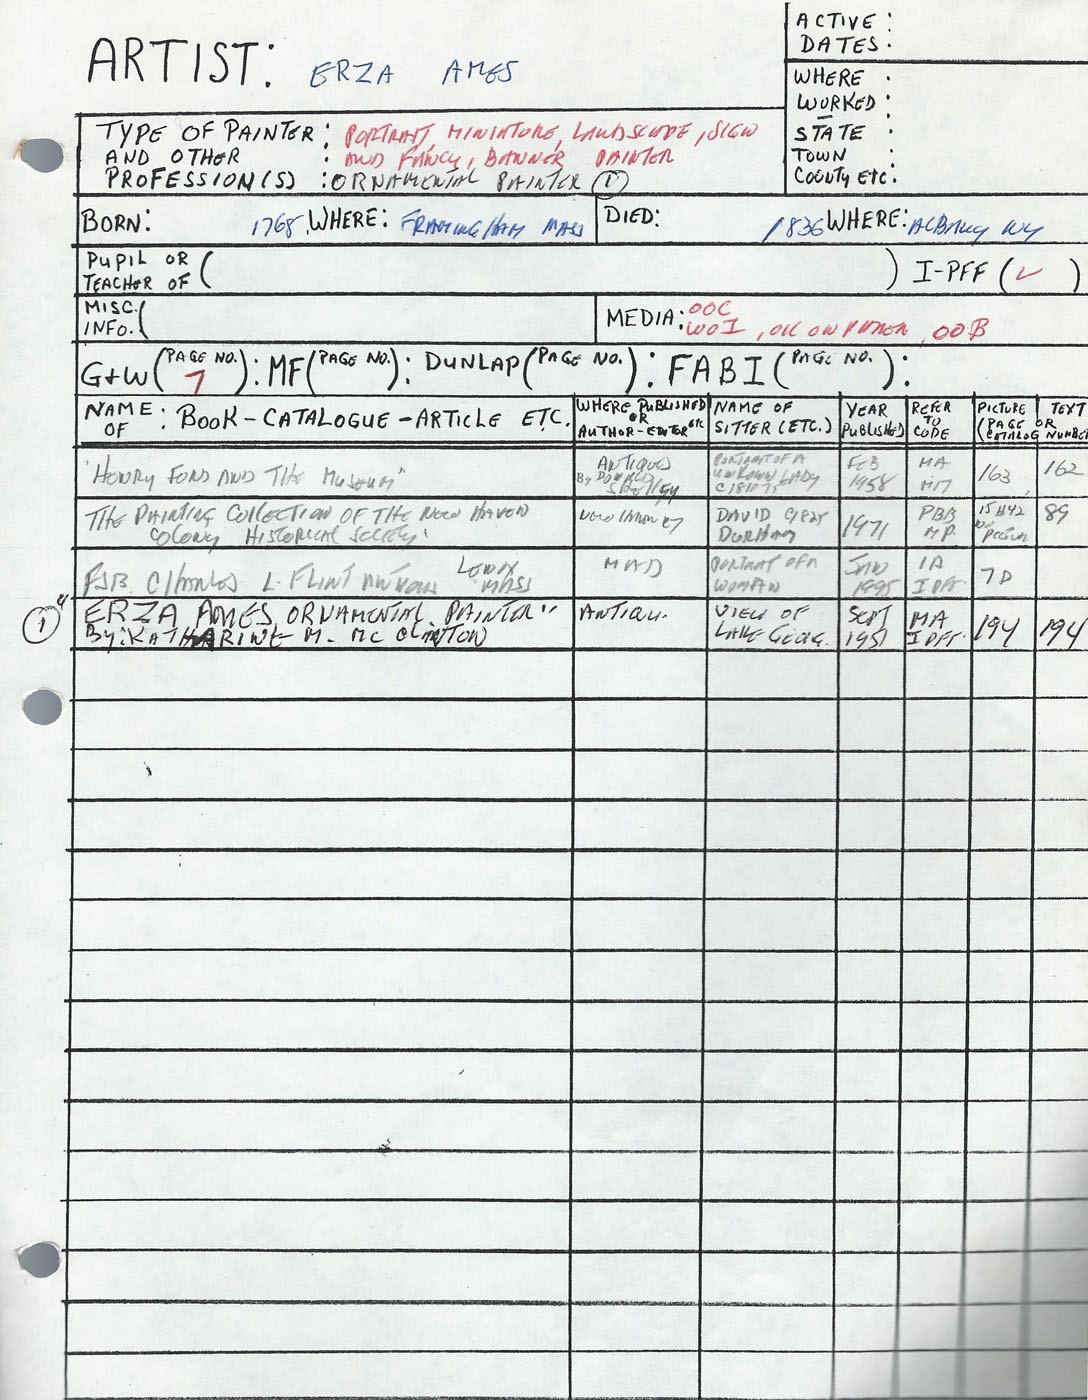 ARTIST: ERZA AMES
ACTIVE :
DATES :
WHERE :
WORKED :
STATE :
TOWN :
COUNTY ETC :
TYPE OF PAINTER : PORTRAIT, MINIATURE, LANDSCAPE, SIGN
AND OTHER : AND FANCY, BANNER PAINTER
PROFESSION(S) : ORNAMENTAL PAINTER (1)
BORN: 1768 WHERE: FRAMINGHAM MASS DIED: 1836 WHERE: ALBANY NY
PUPIL OR
TEACHER OF ( ) I-PFF (✓)
MISC.
INFO. ( MEDIA: OOC
WOI, OIL ON PAPER, OOB
G+W (PAGE NO. 7): MF (PAGE NO.): DUNLAP (PAGE NO.): FABI (PAGE NO.):
NAME OF : BOOK-CATALOGUE-ARTICLE ETC.
WHERE PUBLISHED OR AUTHOR-EDITOR ETC
NAME OF SITTER (ETC.)
YEAR PUBLISHED
REFER TO CODE
PICTURE TEXT
(PAGE OR
CATALOG NUMBER
"HENRY FORD AND THE MUSEUM" ANTIQUES By DONALD SHELLEY PORTRAIT OF A UNKNOWN LADY FEB 1958 MA 163 162
THE PAINTING COLLECTION OF THE NEW HAVEN
COLONY HISTORICAL SOCIETY DAVID DURHAM 1971 PBB MP 89
CHARLES L. FLINT ANTIQUES LENOX MASS MAD PORTRAIT OF A WOMAN JAN 1995 7D
(1) "ERZA AMES, ORNAMENTAL PAINTER" ANTIQU. VIEW OF LAKE GEORG. SEPT 1951 MA 194 194
By: KATHARINE M. MC CLINTON